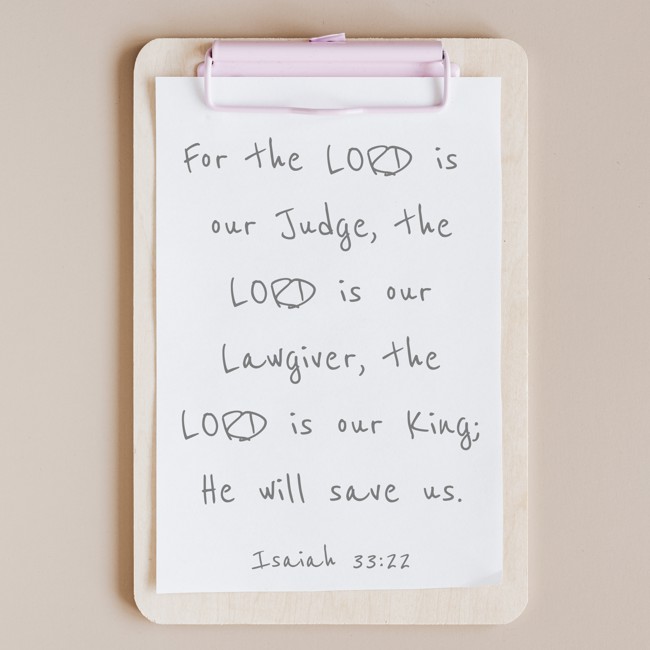 For the LORD is
our Judge, the
LORD is our
Lawgiver, the
LORD is our King;
He will save us.
Isaiah 33:22